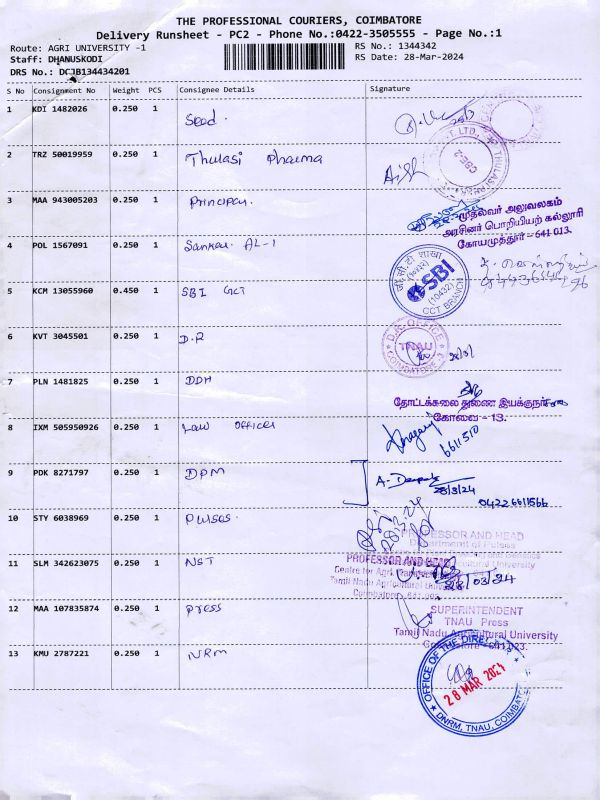 THE PROFESSIONAL COURIERS, COIMBATORE
Delivery Runsheet - PC2 - Phone No.:0422-3505555 - Page No.:1
Route: AGRI UNIVERSITY -1
RS No.: 1344342
Staff: DHANUSKODI
RS Date: 28-Mar-2024
DRS No.: DCJB134434201
S No Consignment No Weight PCS Consignee Details Signature
1 KDI 1482026 0.250 1 Seed.
2 TRZ 50019959 0.250 1 Thulasi Pharma
3 MAA 943005203 0.250 1 Principal.
முதல்வர் அலுவலகம்
அரசினர் பொறியியற் கல்லூரி
கோயமுத்தூர் - 641 013.
4 POL 1567091 0.250 1 Sankari AL-1
SBI
(10432)
5 KCM 13055960 0.450 1 SBI GCT
6 KVT 3045501 0.250 1 D.R
TNAU
7 PLN 1481825 0.250 1 DDH
தோட்டக்கலை துணை இயக்குநர்
கோவை - 13.
8 IXM 505950926 0.250 1 Law Officer
6611510
9 PDK 8271797 0.250 1 DPM
28/3/24
04226611566
10 STY 6038969 0.250 1 Pulses.
PROFESSOR AND HEAD
Department of Pulses
11 SLM 342623075 0.250 1 NST
PROFESSOR AND HEAD
28/03/24
12 MAA 107835874 0.250 1 Press
SUPERINTENDENT
TNAU Press
Tamil Nadu Agricultural University
13 KMU 2787221 0.250 1 NRM
OFFICE OF THE DIRECTOR
28 MAR 2024
DNRM, TNAU, COIMBATORE